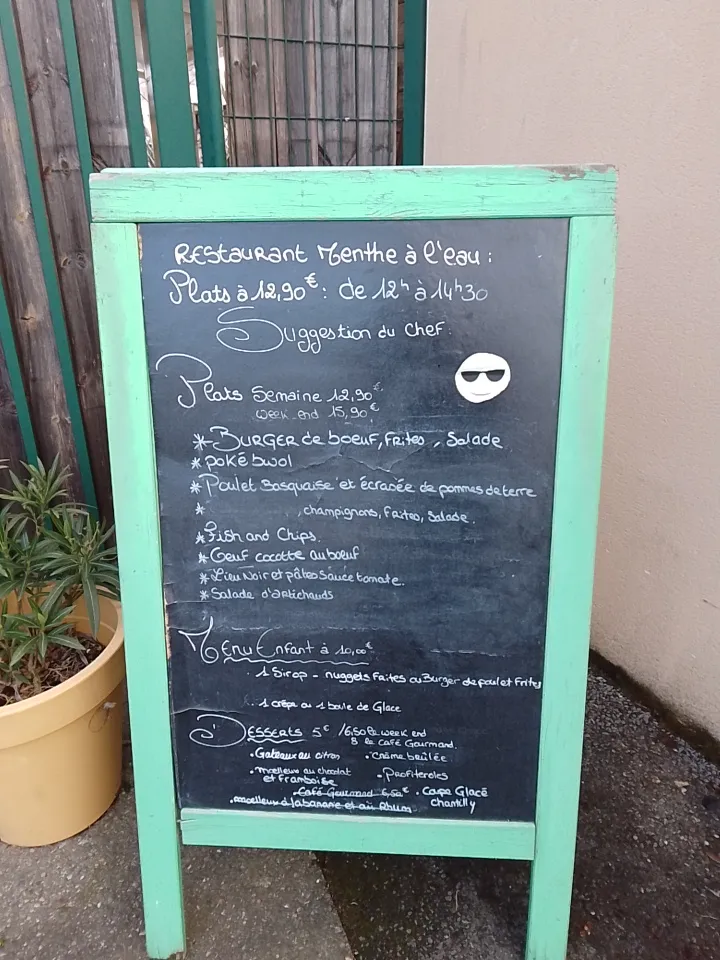 REStauRant Menthe à l'eau :
Plats à 12,90€ : de 12h à 14h30
Suggestion du chef :
Plats Semaine 12,90€
week-end 15,90€
* BURGER de boeuf, frites, Salade
* poké bwol
* Poulet Basquaise et écrasée de pommes de terre
* champignons, frites, Salade.
* Fish and Chips.
* Oeuf cocotte au boeuf
* Lieu Noir et pâtes Sauce tomate.
* Salade d'Artichauds
Menu Enfant à 10,00€
. 1 Sirop - nuggets Frites ou Burger de poulet Frites
. 1 crêpe ou 1 boule de Glace
DESSERTS 5€ /6,50 le week end
8 le café Gourmand.
. Gateaux au citron . crème brûlée
. moelleux au chocolat . Profiteroles
et framboise
Café Gourmand 6,50€ . Coupe Glacé
. moelleux à la banane et au Rhum chantilly